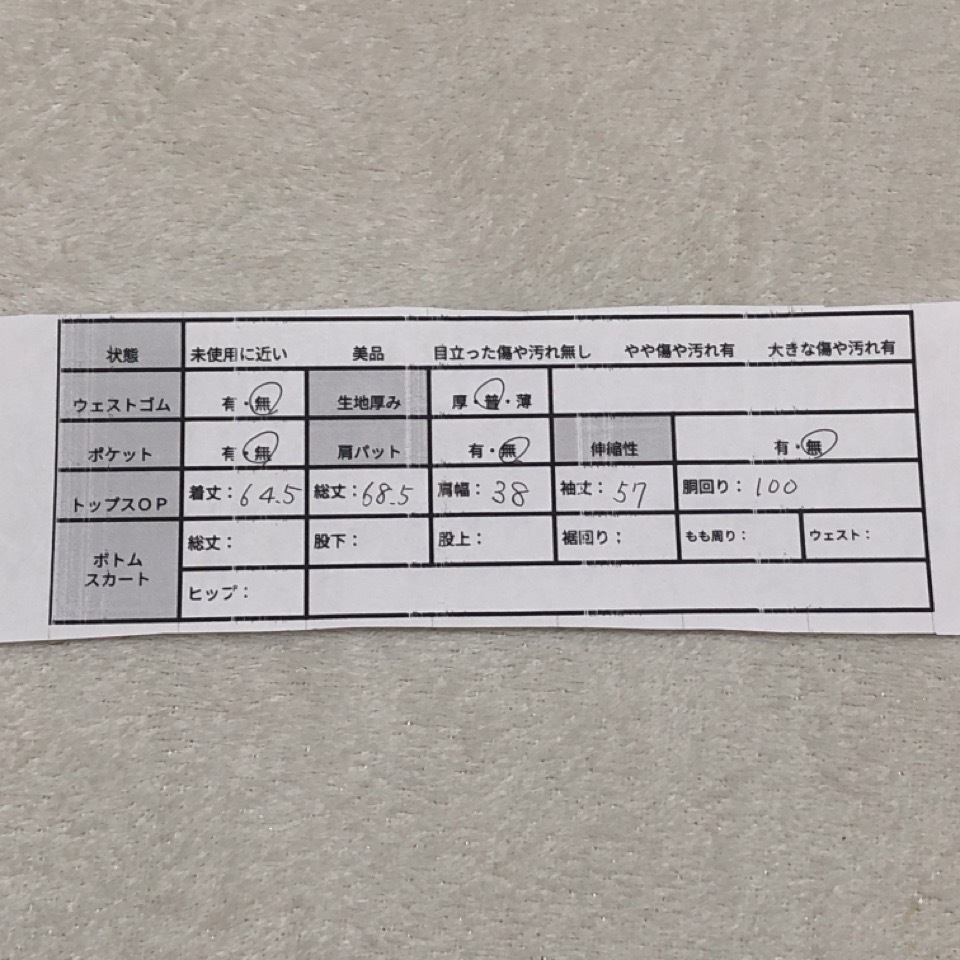 状態 未使用に近い 美品 目立った傷や汚れ無し やや傷や汚れ有 大きな傷や汚れ有
ウェストゴム 有・無 生地厚み 厚・普・薄
ポケット 有・無 肩パット 有・無 伸縮性 有・無
トップスOP 着丈：64.5 総丈：68.5 肩幅：38 袖丈：57 胴回り：100
ボトム
スカート
総丈： 股下： 股上： 裾回り； もも周り； ウェスト：
ヒップ：